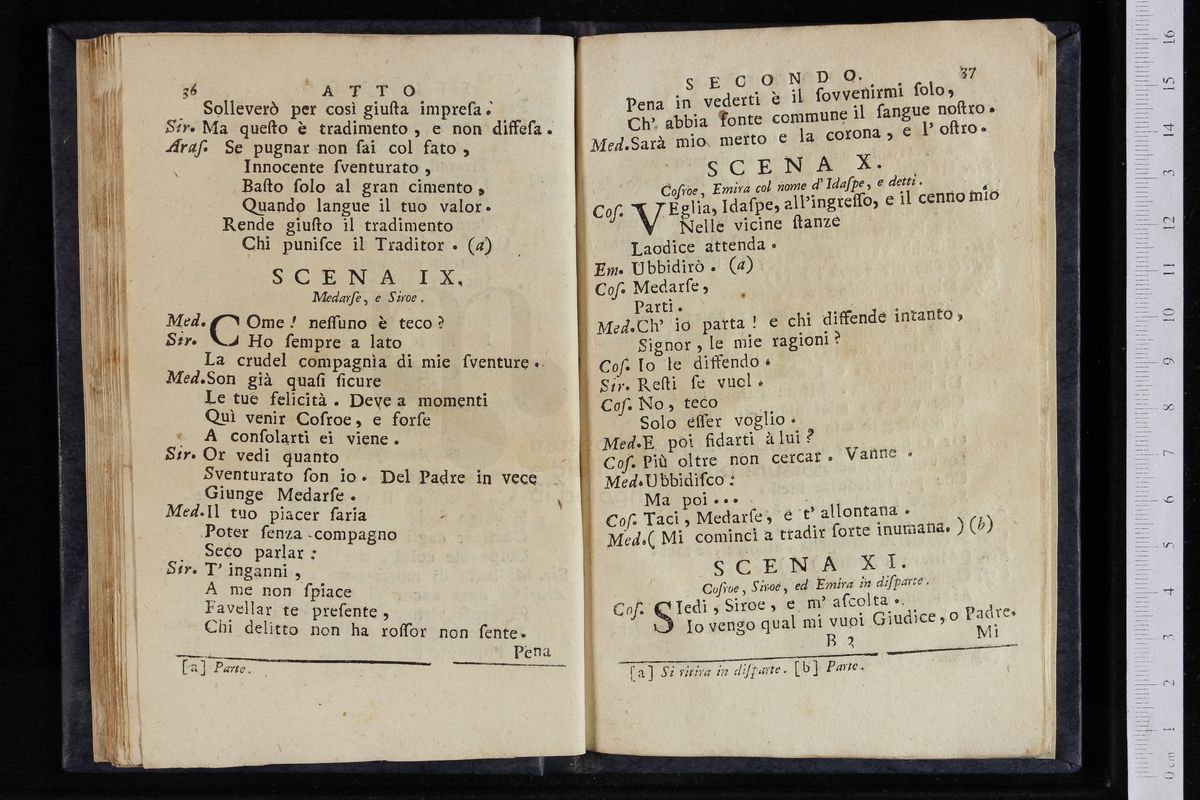 36 ATTO
Solleverò per così giuſta impreſa.
Sir. Ma queſto è tradimento, e non diffeſa.
Araſ. Se pugnar non ſai col fato,
Innocente ſventurato,
Baſto ſolo al gran cimento,
Quando langue il tuo valor.
Rende giuſto il tradimento
Chi puniſce il Traditor. (a)
SCENA IX.
Medarſe, e Siroe.
Med. COme! neſſuno è teco?
Sir. Ho ſempre a lato
La crudel compagnìa di mie ſventure.
Med. Son già quaſi ſicure
Le tue felicità. Deve a momenti
Quì venir Coſroe, e forſe
A conſolarti ei viene.
Sir. Or vedi quanto
Sventurato ſon io. Del Padre in vece
Giunge Medarſe.
Med. Il tuo piacer ſaria
Poter ſenza compagno
Seco parlar:
Sir. T' inganni,
A me non ſpiace
Favellar te preſente,
Chi delitto non ha roſſor non ſente.
Pena
[a] Parte.
SECONDO. 37
Pena in vederti è il ſovvenirmi ſolo,
Ch' abbia fonte commune il ſangue noſtro.
Med. Sarà mio merto e la corona, e l' oſtro.
SCENA X.
Coſroe, Emira col nome d' Idaſpe, e detti.
Coſ. VEglia, Idaſpe, all'ingreſſo, e il cenno mio
Nelle vicine ſtanze
Laodice attenda.
Em. Ubbidirò. (a)
Coſ. Medarſe,
Parti.
Med. Ch' io parta! e chi diffende intanto,
Signor, le mie ragioni?
Coſ. Io le diffendo.
Sir. Reſti ſe vuol.
Coſ. No, teco
Solo eſſer voglio.
Med. E poi fidarti à lui?
Coſ. Più oltre non cercar. Vanne.
Med. Ubbidiſco:
Ma poi...
Coſ. Taci, Medarſe, e t' allontana.
Med. (Mi cominci a tradir ſorte inumana.) (b)
SCENA XI.
Coſroe, Siroe, ed Emira in diſparte.
Coſ. SIedi, Siroe, e m' aſcolta.
Io vengo qual mi vuoi Giudice, o Padre.
B 3 Mi
[a] Si ritira in diſparte. [b] Parte.
0 cm 1 2 3 4 5 6 7 8 9 10 11 12 3 14 15 16